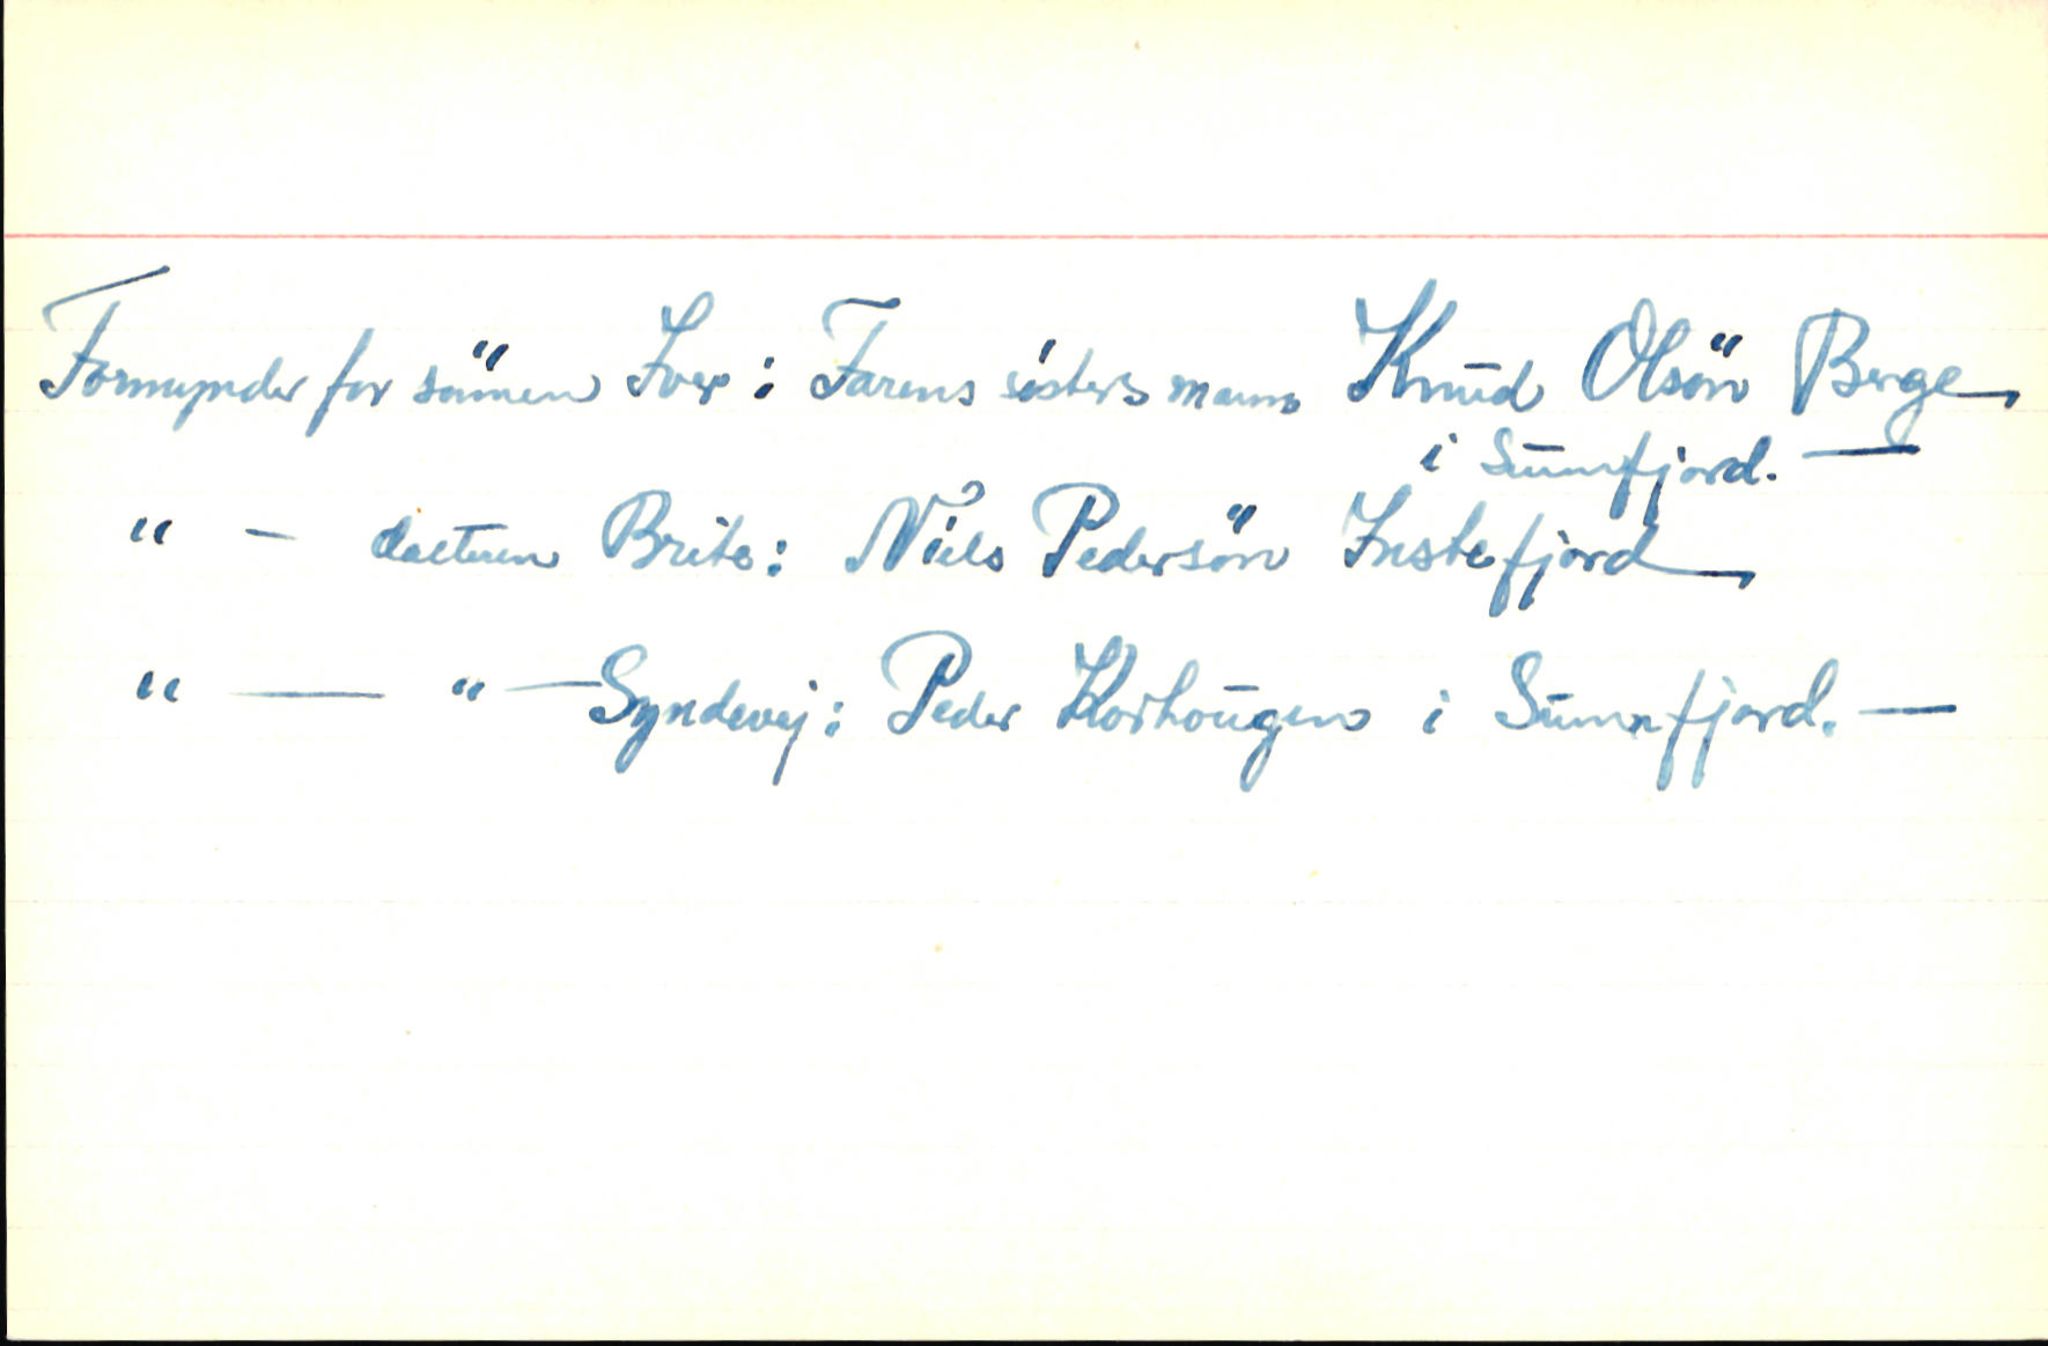 Formynder for sönnen Iver: Farens søsters mann Knud Olsön Berge
i Sunnfjord. —
" - datteren Brite: Niels Pedersön Instefjord
" — " — Syndevej: Peder Korhougen i Sunnfjord. —